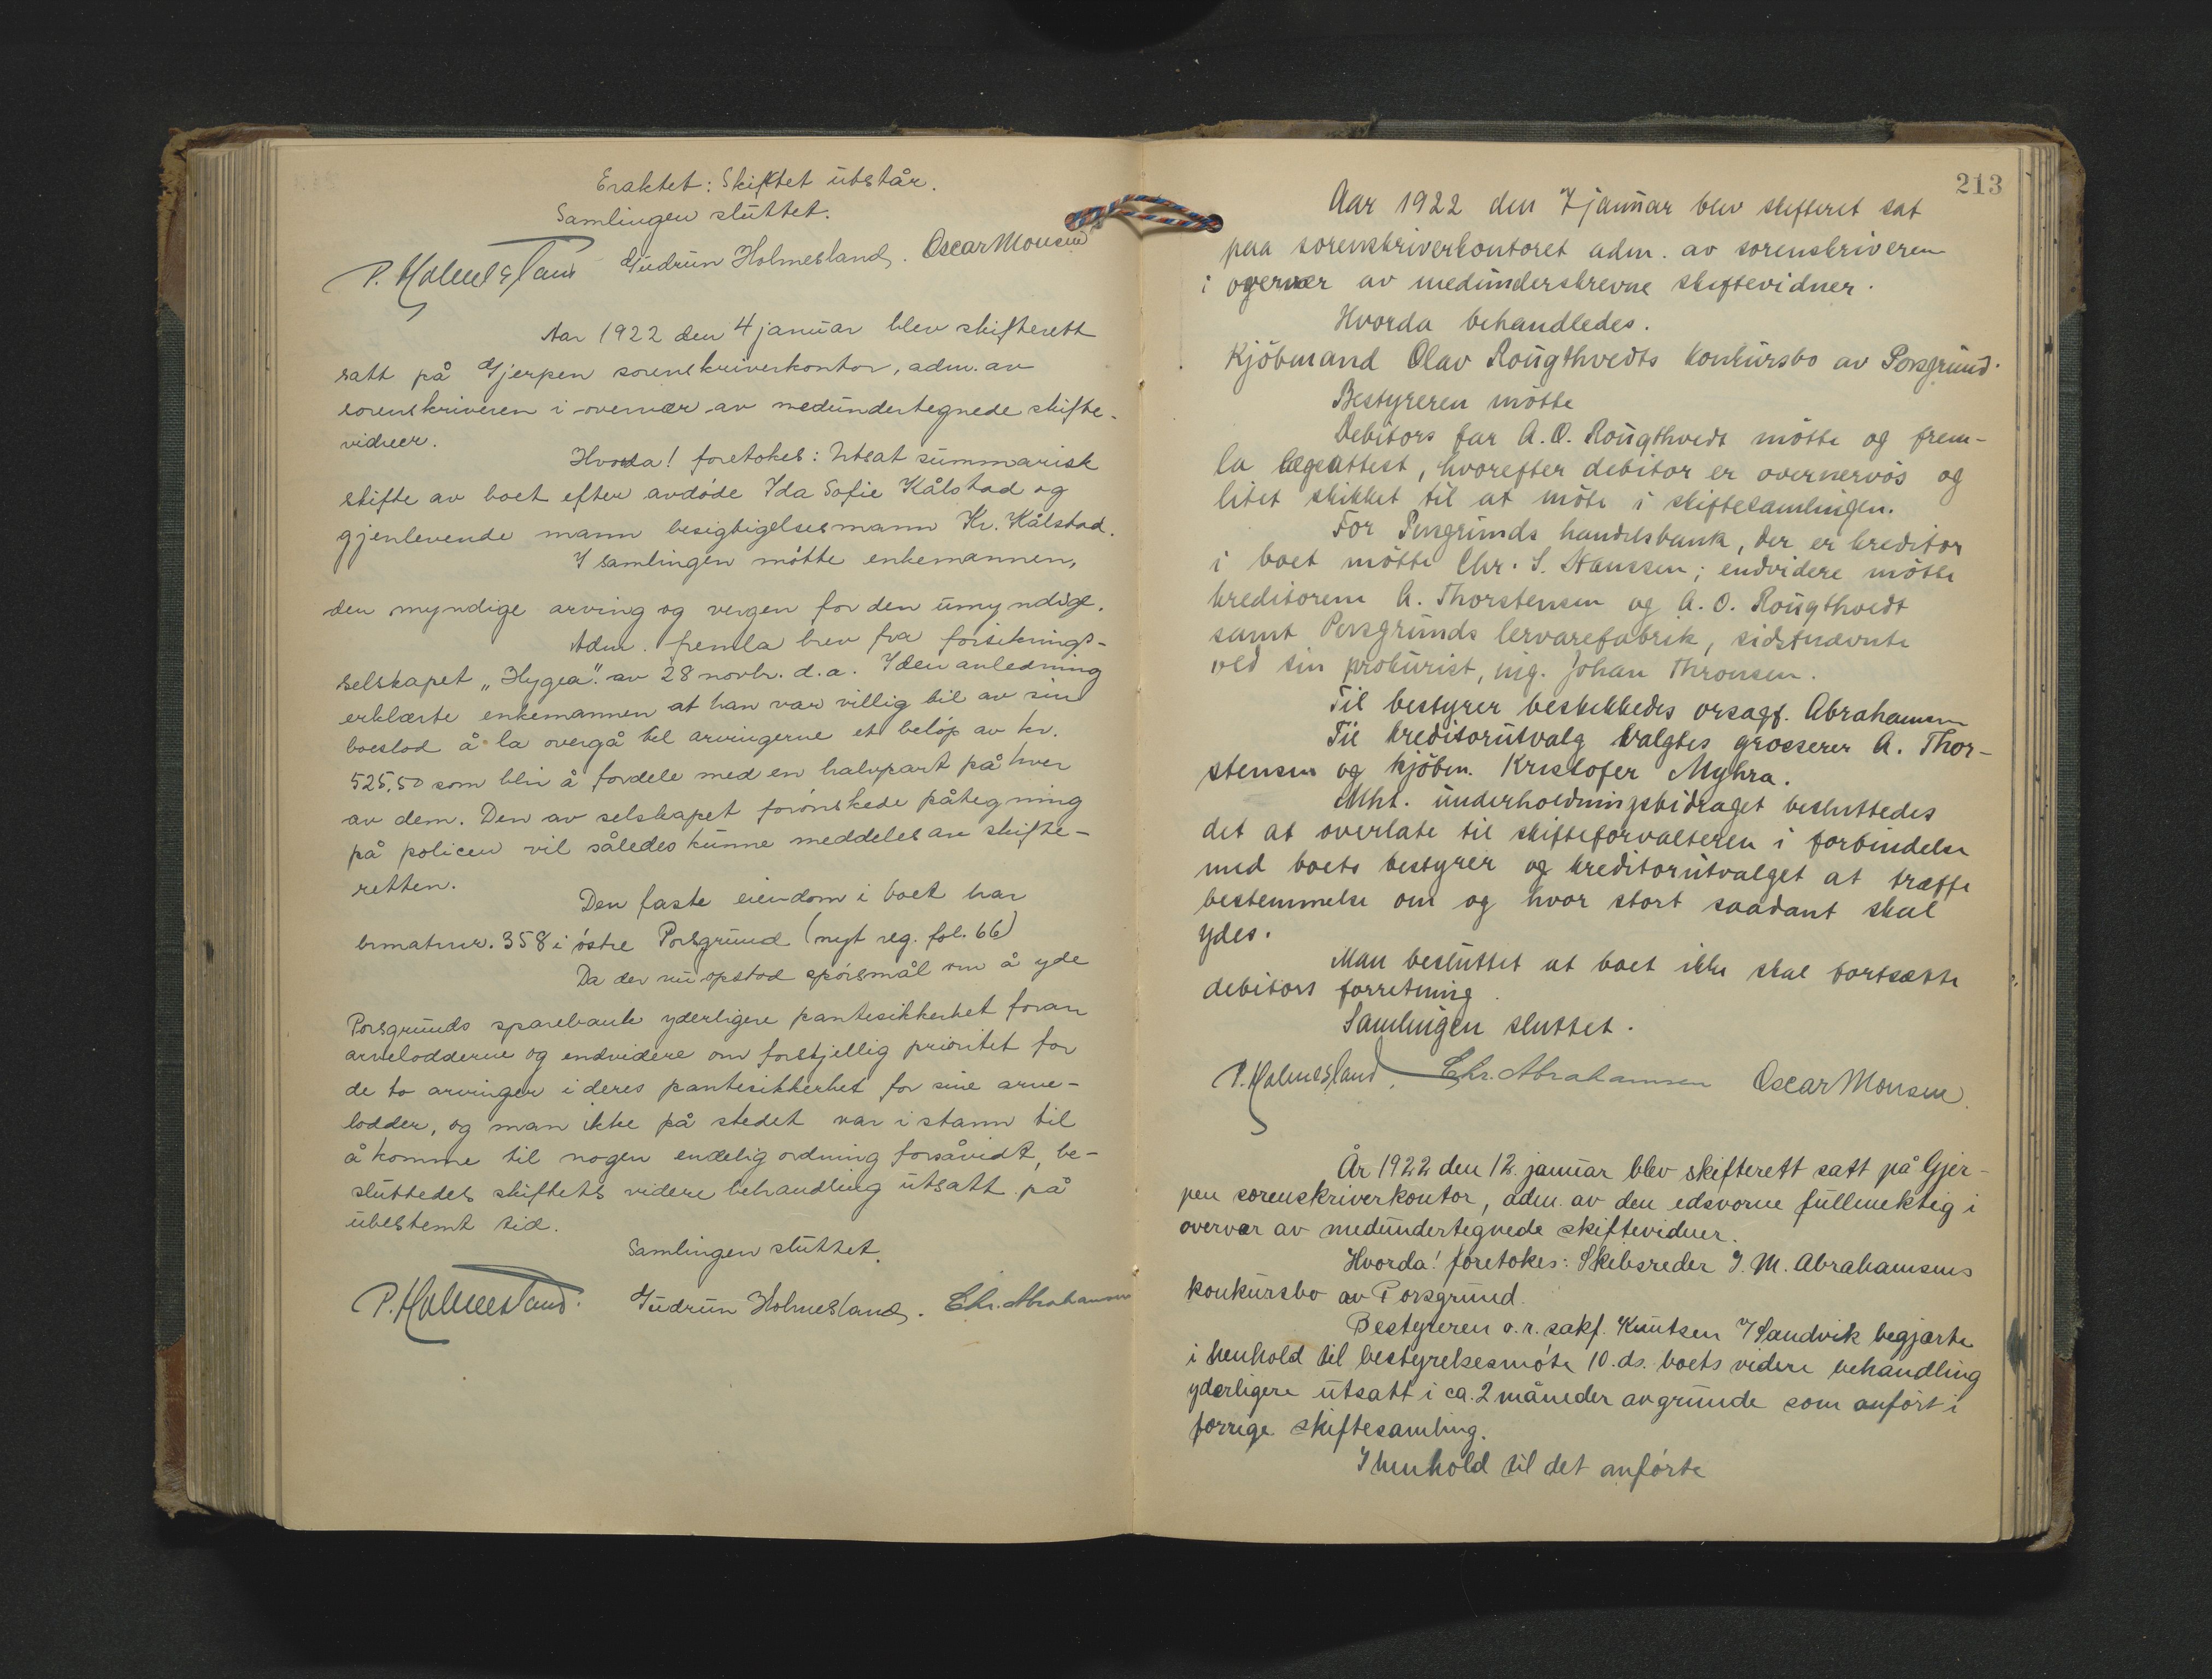 Eraktet: Skiftet utstår.
Samlingen sluttet.
P. Holmesland Gudrun Holmesland. Oscar Monsen
Aar 1922 den 4 januar blev skifterett
satt på Gjerpen sorenskriverkontor, adm. av
sorenskriveren i overvær av medundertegnede skifte-
vidner.
Hvorda! foretokes: Utsat summarisk
skifte av boet efter avdøde Ida Sofie Kålstad og
gjenlevende mann besigtigelsesmann Kr. Kålstad.
I samlingen møtte enkemannen,
den myndige arving og vergen for den umyndige.
Adm. fremla brev fra forsikrings-
selskapet „Hygea". av 28 novbr. d.a. I den anledning
erklærte enkemannen at han var villig til av sin
boeslod å la overgå til arvingerne et beløp av kr.
525,50 som blir å fordele med en halvpart på hver
av dem. Den av selskapet forønskede påtegning
på policen vil således kunne meddeles av skifte-
retten.
Den faste eiendom i boet har
brmatrnr. 358 i østre Porsgrund (nyt reg. fol. 66)
Da der nu opstod spørsmål om å yde
Porsgrunds sparebank yderligere pantesikkerhet foran
arvelodderne og endvidere om forskjellig prioritet for
de to arvinger i deres pantesikkerhet for sine arve-
lodder, og man ikke på stedet var i stann til
å komme til nogen endelig ordning forsåvidt, be-
sluttedes skiftets videre behandling utsatt på
ubestemt tid.
Samlingen sluttet.
P. Holmesland. Gudrun Holmesland. Chr. Abrahamsen
213
Aar 1922 den 7 januar blev skifteret sat
paa sorenskriverkontoret adm. av sorenskriveren
i overvær av medunderskrevne skiftevidner.
Hvorda behandledes.
Kjöbmand Olav Rougthvedts konkursbo av Porsgrund.
Bestyreren mötte
Debitors far A. O. Rougthvedt mötte og frem-
la lægeattest, hvorefter debitor er overnervös og
litet skikket til at möte i skiftesamlingen.
For Porsgrunds handelsbank, der er kreditor
i boet mötte Chr. S. Hanssen; endvidere mötte
kreditorerne A. Thorstensen og A. O. Rougthvedt
samt Porsgrunds lervarefabrik, sidstnævnte
ved sin prokurist, ing. Johan Thronsen.
Til bestyrer beskikkedes orsagf. Abrahamsen
Til kreditorutvalg valgtes grosserer A. Thor-
stensen og kjöbm. Kristofer Myhra.
Mht. underholdningsbidraget besluttedes
det at overlate til skifteforvalteren i forbindelse
med boets bestyrer og kreditorutvalget at træffe
bestemmelse om og hvor stort saadant skal
ydes.
Man besluttet at boet ikke skal fortsætte
debitors forretning.
Samlingen sluttet.
P. Holmesland. Chr. Abrahamsen Oscar Monsen.
År 1922 den 12. januar blev skifterett satt på Gjer-
pen sorenskriverkontor, adm. av den edsvorne fullmektig i
overvær av medundertegnede skiftevidner.
Hvorda! foretokes: Skibsreder I. M. Abrahamsens
konkursbo av Porsgrund.
Bestyreren o.r.sakf. Knutsen I Sandvik begjærte
i henhold til bestyrelsesmøte 10. ds. boets videre behandling
yderligere utsatt i ca. 2 måneder av grunde som anført i
forrige skiftesamling.
I henhold til det anførte